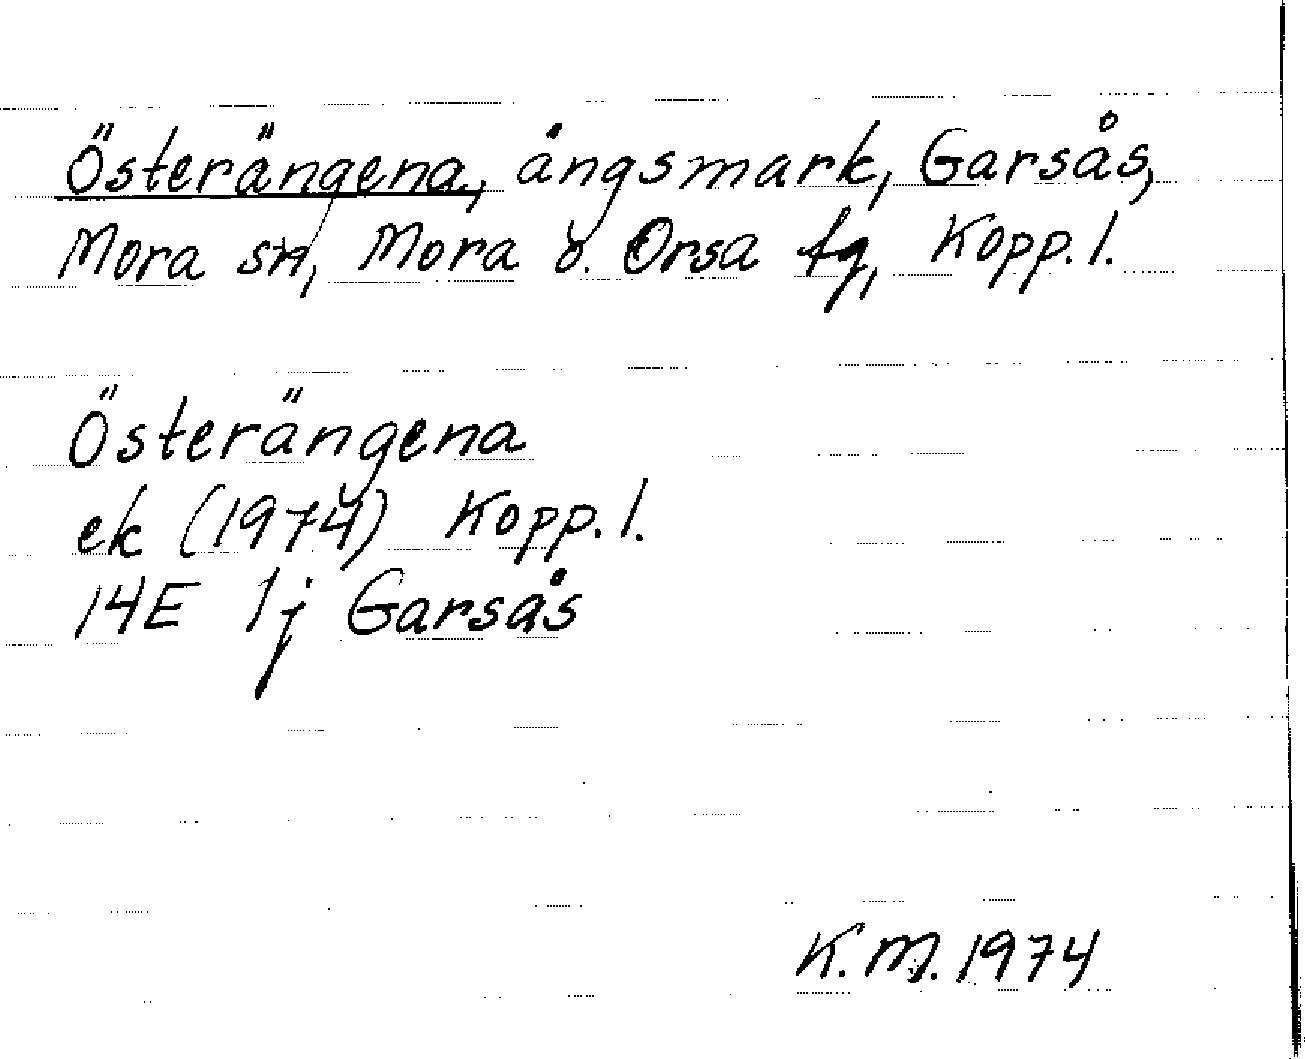 Österängena, ängsmark, Garsås,
Mora sn, Mora o. Orsa tg, Kopp. l.
Österängena
ek (1974) Kopp. l.
14E 1j Garsås
K.M. 1974